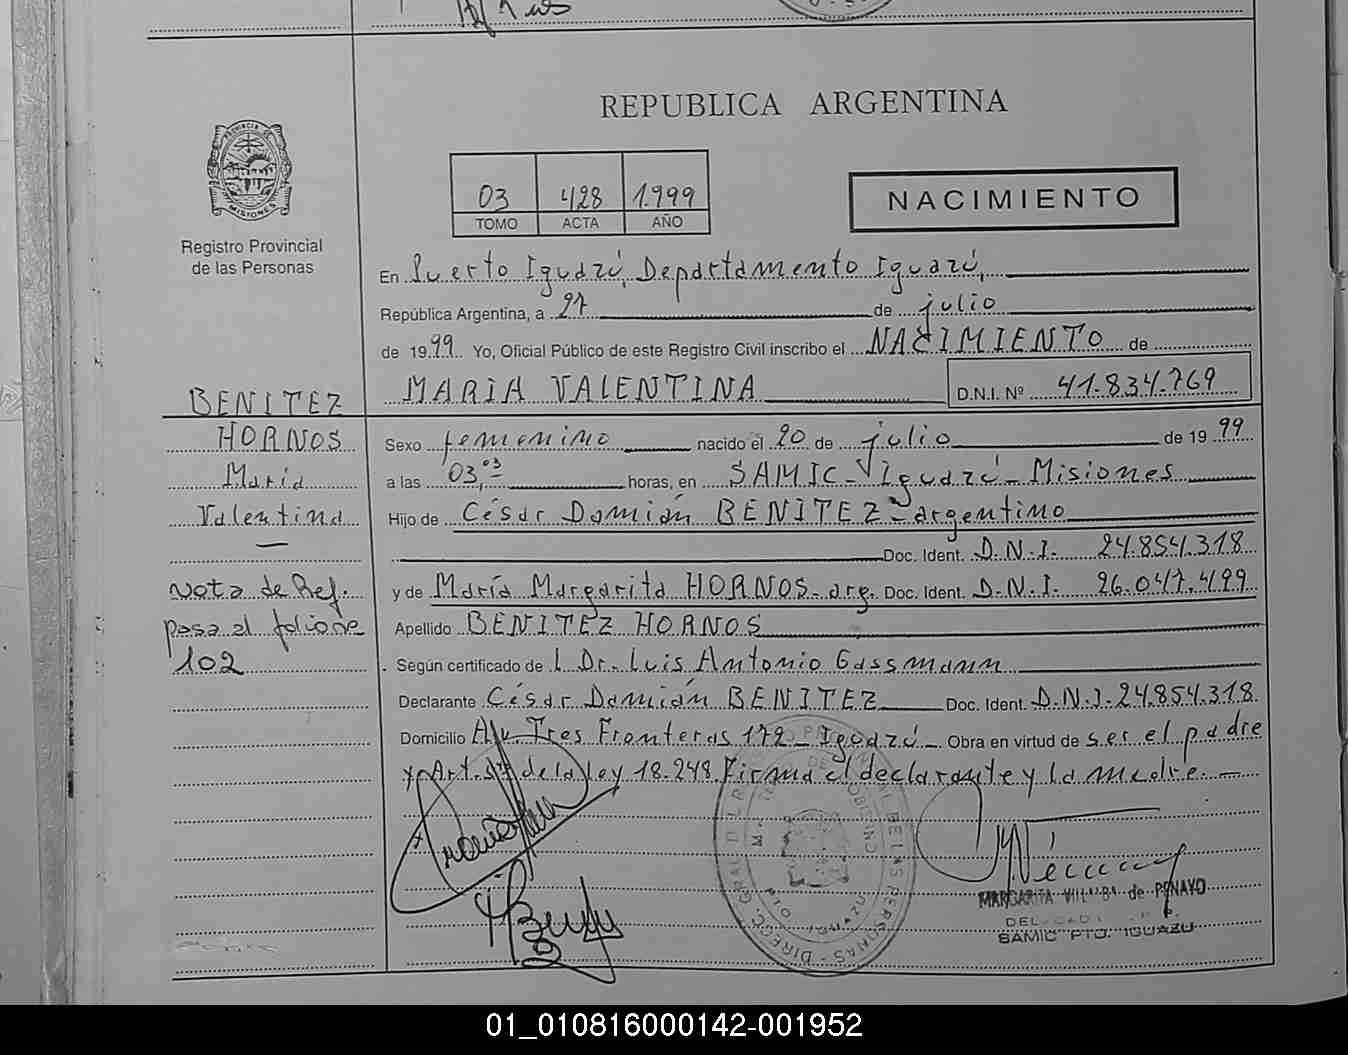 REPUBLICA ARGENTINA
PROVINCIA DE MISIONES
Registro Provincial
de las Personas
03 428 1.999
TOMO ACTA AÑO
NACIMIENTO
En Puerto Iguazú, Departamento Iguazú,
República Argentina, a 27 de julio
de 1999 Yo, Oficial Público de este Registro Civil inscribo el NACIMIENTO de
MARIA VALENTINA D.N.I. Nº 41.834.769
BENITEZ
HORNOS
María
Valentina
Nota de Ref.
pasa al folio ne
102
Sexo femenino nacido el 20 de julio de 1999
a las 03,03 horas, en SAMIC - Iguazú - Misiones
Hijo de César Damián BENITEZ - argentino
Doc. Ident. D.N.I. 24.854.318
y de María Margarita HORNOS - arg. Doc. Ident. D.N.I. 26.047.499
Apellido BENITEZ HORNOS
Según certificado de l Dr. Luis Antonio Gassmann
Declarante César Damián BENITEZ Doc. Ident. D.N.I. 24.854.318
Domicilio Av. Tres Fronteras 172 - Iguazú - Obra en virtud de ser el padre
y Art. de la Ley 18.248. Firma el declarante y la madre. -
MARGARITA de PENAYO
SAMIC PTO. IGUAZU
01_010816000142-001952